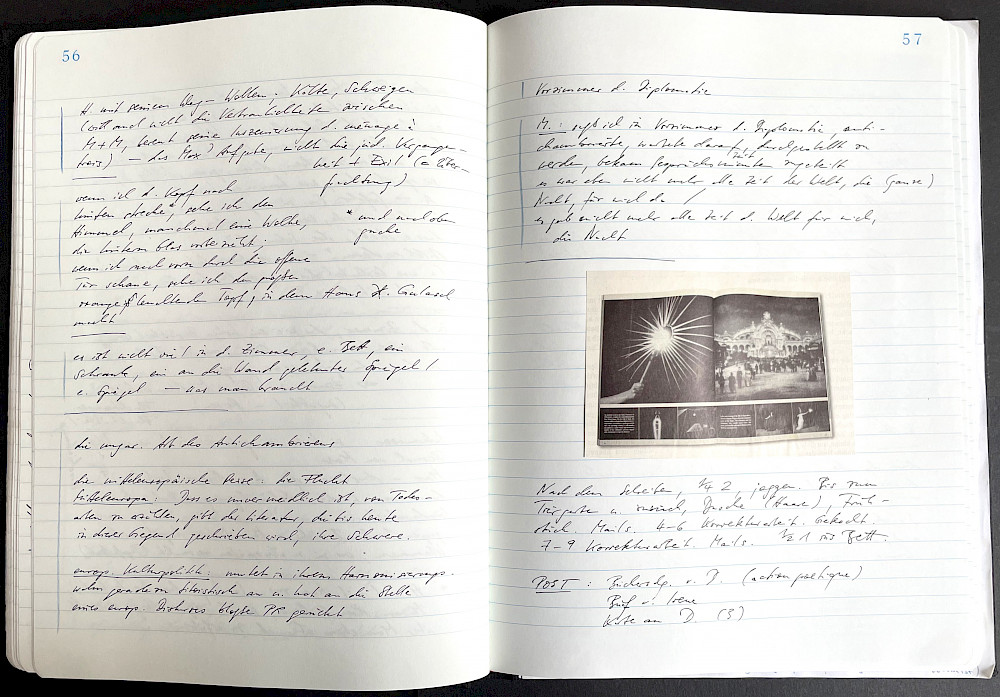 56
H. mit seinem Weg-Wollen; Kälte, Schweigen
(will auch nicht die Vertraulichkeit zwischen
M+M, kennt seine Inszenierung d. ménage à
trois) – das Max' Aufgabe, nicht die jüd. Vergangen-
heit + Exil (= Über-
frachtung)
wenn ich d. Kopf nach
hinten strecke*, sehe ich den
Himmel, manchmal eine Wolke,
* und nach oben
gucke
die hinterm Blau vorbeizieht;
wenn ich nach vorn durch die offene
Tür schaue, sehe ich den großen
orange leuchtenden Topf, in dem Hans H. Gulasch
macht
es ist nicht viel in d. Zimmer, e. Bett, ein
Schrank, ein an die Wand gelehnter Spiegel /
e. Spiegel – was man braucht
die ungar. Art des Antichambrierens
die mitteleuropäische Reise: die Flucht
Mitteleuropa: Dass es unvermeidlich ist, von Todes-
arten zu erzählen, gibt der Literatur, die bis heute
in dieser Gegend geschrieben wird, ihre Schwere.
europ. Kulturpolitik: mutet in ihrem Harmonisierungs-
wahn geradezu titoistisch an u. hat an die Stelle
eines europ. Diskurses bloße PR gerückt
57
Vorzimmer d. Diplomatie
M.: saß ich im Vorzimmer d. Diplomatie, anti-
chambrierte, wartete darauf, durchgestellt zu
werden, bekam Gesprächsminuten zugeteilt
Zeit
es war eben nicht mehr alle Zeit der Welt, die (ganze)
Nacht, für mich da /
es gab nicht mehr alle Zeit d. Welt für mich,
die Nacht
Nach dem Schreiben, 1/4 2 joggen. Bis zum
Tiergarten u. zurück, Dusche (Haare), Früh-
stück. Mails. 4-6 Korrekturarbeit. Gekocht.
7-9 Korrekturarbeit. Mails. 1/2 1 ins Bett.
POST: Büchersdg. v. D. (action poétique)
Brief v. Irene
Karte an D. (3)